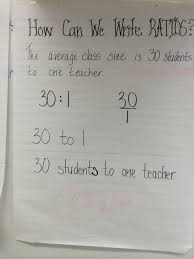 How Can We Write RATIOS?
The average class size is 30 students
to one teacher.
30:1
30
1
30 to 1
30 students to one teacher